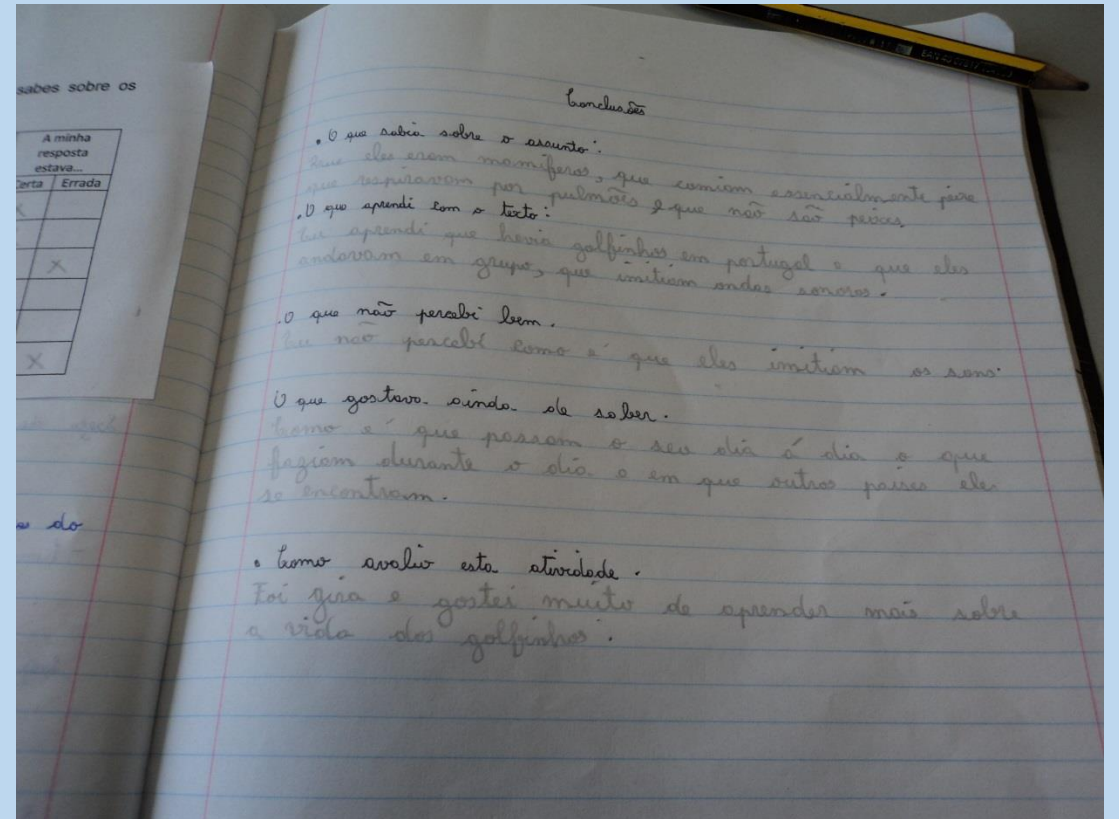 sabes sobre os
A minha
resposta
estava...
Certa Errada
X
X
X
do
Conclusões
. O que sabia sobre o assunto:
Que eles eram mamíferos, que comiam essencialmente peixe
que respiravam por pulmões e que não são peixes.
. O que aprendi com o texto:
Eu aprendi que havia golfinhos em portugal e que eles
andavam em grupo, que imitiam ondas sonoras.
. O que não percebi bem.
Eu não percebi como é que eles imitiam os sons.
O que gostava ainda de saber.
Como é que passam o seu dia á dia o que
faziam durante o dia e em que outros países eles
se encontram.
. Como avalio esta atividade.
Foi gira e gostei muito de aprender mais sobre
a vida dos golfinhos.